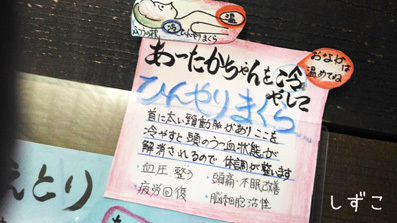 温
ひんやりまくら
あったかちゃんを冷
やして
おなかは
温めてね
ひんやりまくら
首に太い頸動脈がありここを
冷やすと頭のうっ血状態が
解消されるので体調が整います
・血圧整う
・頭痛・不眠改善
・疲労回復
・脳細胞活性
えとり
しずこ